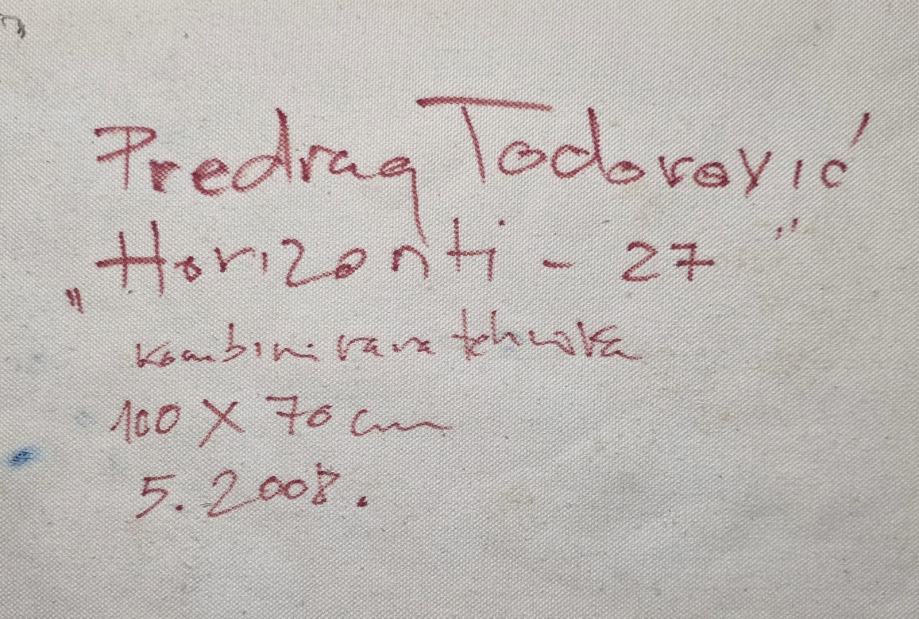 Predrag Todorović
„Horizonti - 27"
kombinirana tehnika
100 X 70 cm
5. 2008.